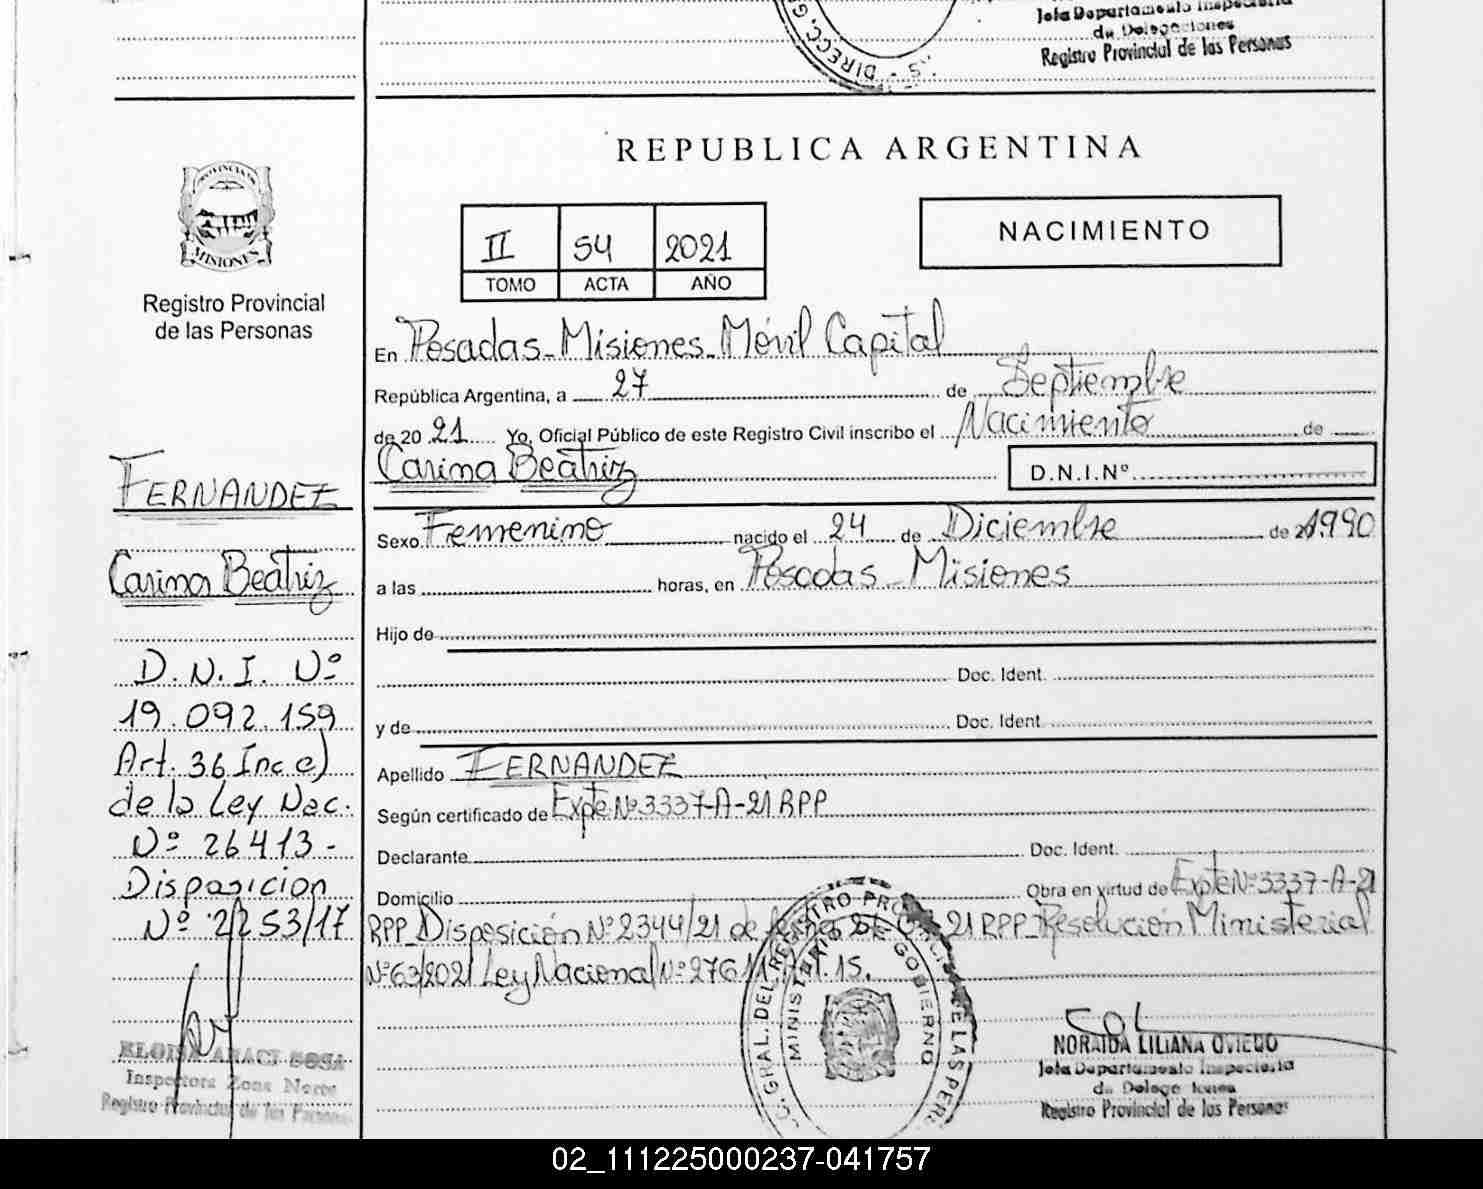 Jefe Departamento Inspectoria
de Delegaciones
Registro Provincial de las Personas
DIRECC. G
REPUBLICA ARGENTINA
PROVINCIA DE
MISIONES
Registro Provincial
de las Personas
II 54 2021
TOMO ACTA AÑO
NACIMIENTO
En Posadas - Misiones - Móvil Capital
República Argentina, a 27 de Septiembre
de 20 21 Yo, Oficial Público de este Registro Civil inscribo el Nacimiento de
Carina Beatriz D.N.I.Nº
Sexo Femenino nacido el 24 de Diciembre de 1990
a las horas, en Posadas - Misiones
Hijo de
Doc. Ident.
y de Doc. Ident.
Apellido FERNANDEZ
Según certificado de Expte Nº 3337-A-21 RPP
Declarante Doc. Ident.
Domicilio Obra en virtud de Expte Nº 3337-A-21
RPP_Disposición Nº 2344/21 de 21 RPP_Resolución Ministerial
Nº 63/2021 Ley Nacional Nº 27611 15.
FERNANDEZ
Carina Beatriz
D.N.I. Nº
19.092.159
Art. 36 Inc e)
de la Ley Nac.
Nº 26413 -
Disposicion
Nº 2253/17
SOSA
Inspectora Zona Norte
Registro Provincial de las Personas
C. GRAL. DEL REGISTRO PRO DE LAS PER
MINISTERIO DE GOBIERNO
NORAIDA LILIANA OVIEDO
Jefa Departamento Inspectoria
de Delegaciones
Registro Provincial de las Personas
02_111225000237-041757